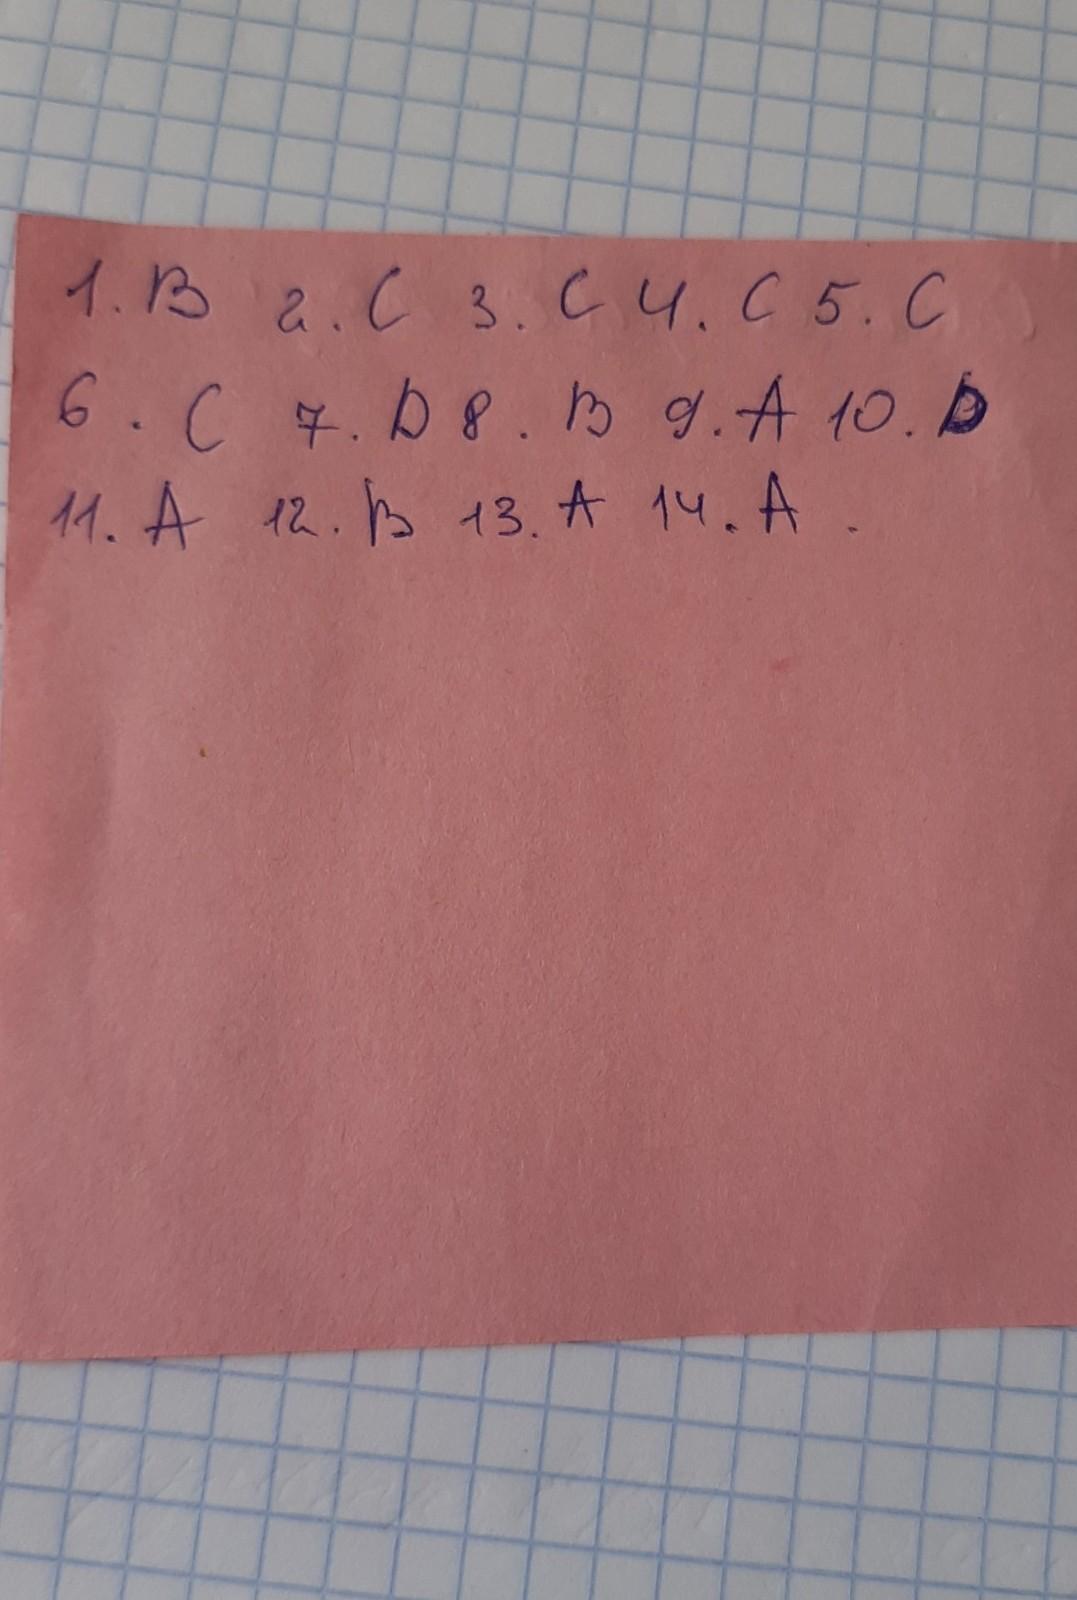 1. B 2. C 3. C 4. C 5. C
6. C 7. D 8. B 9. A 10. D
11. A 12. B 13. A 14. A .